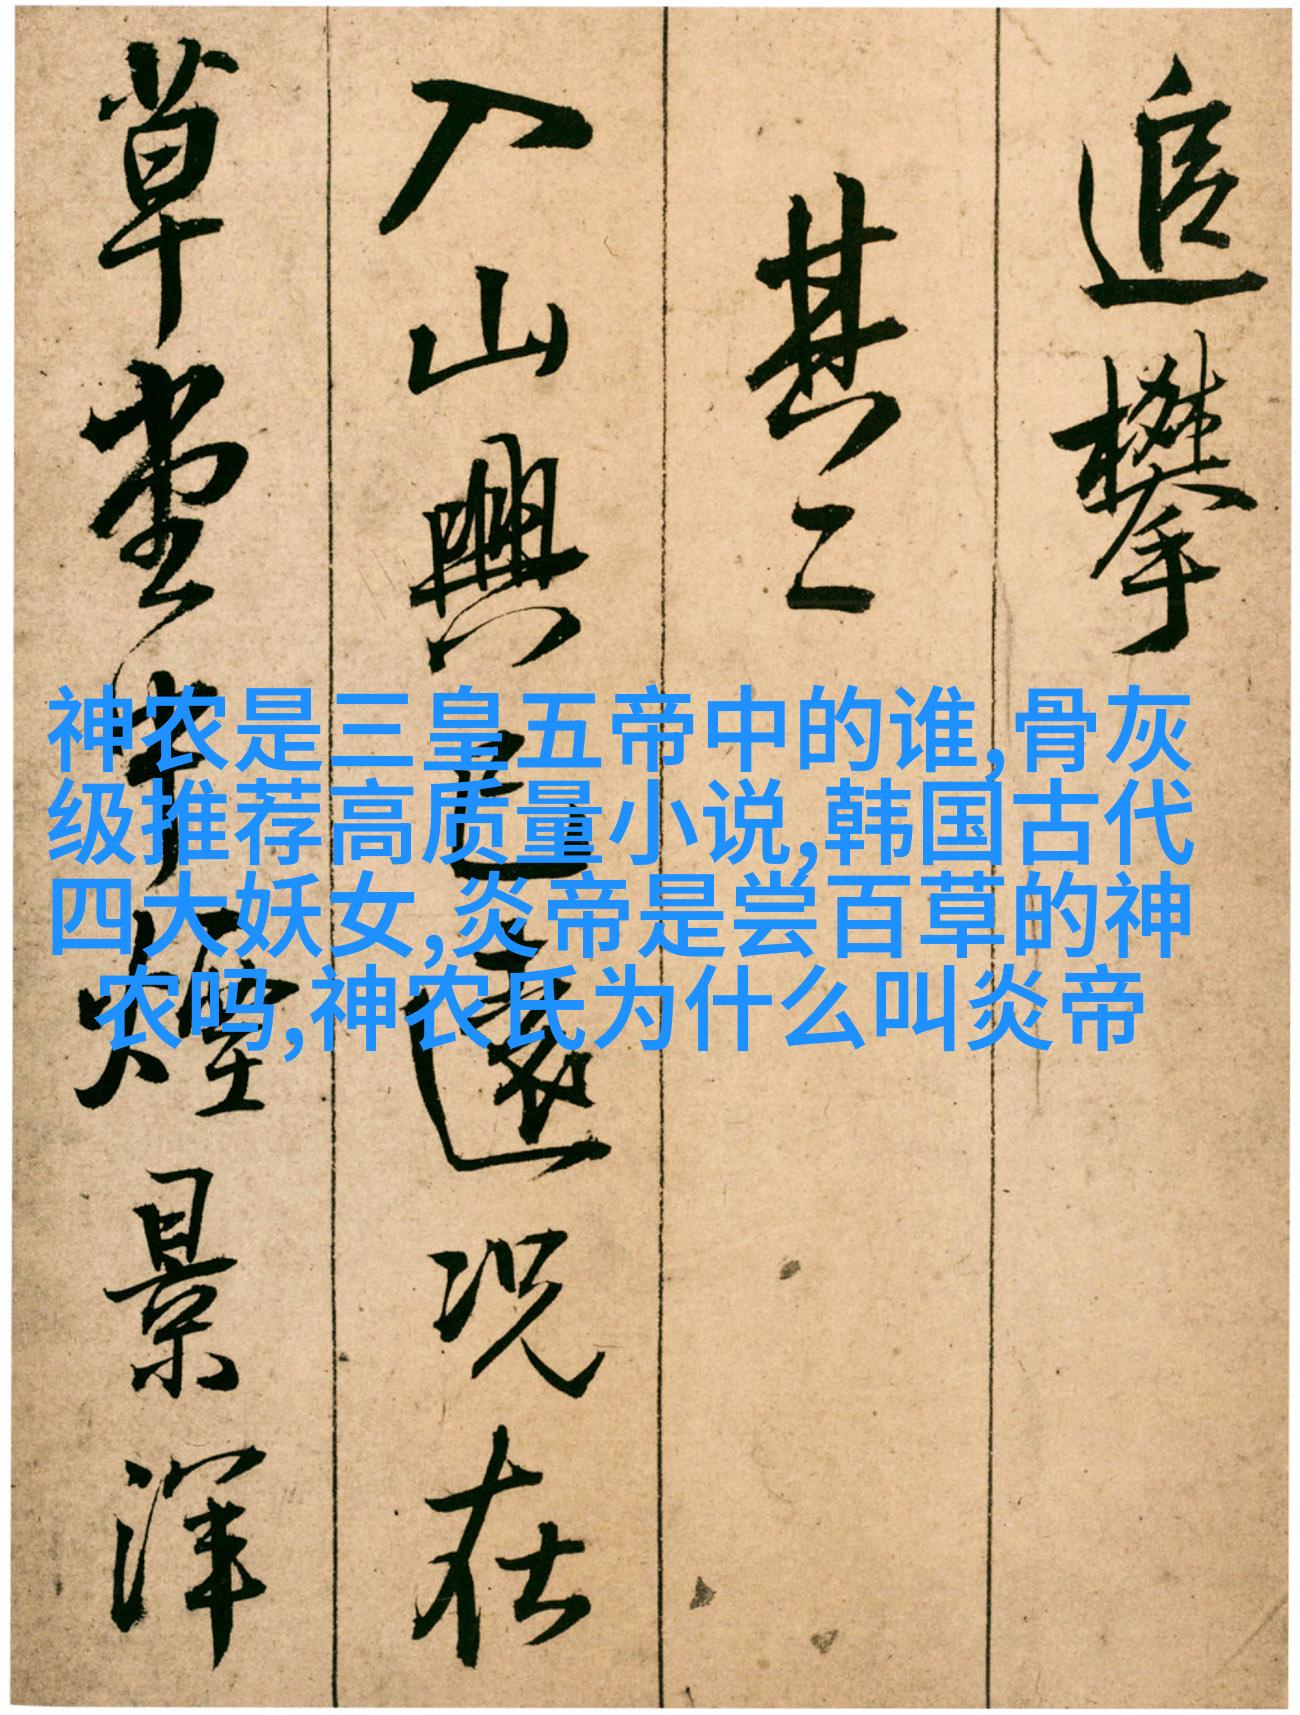 追攀
其二
入山興已遠况在
草堂中煙景渾
神农是三皇五帝中的谁,骨灰
级推荐高质量小说,韩国古代
四大妖女,炎帝是尝百草的神
农吗,神农氏为什么叫炎帝